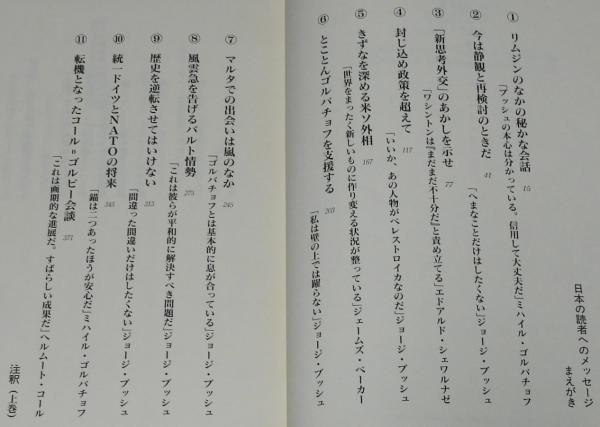 日本の読者へのメッセージ
まえがき
① リムジンのなかの秘かな会話 15
「ブッシュの本心は分かっている。信用して大丈夫だ」ミハイル・ゴルバチョフ
② 今は静観と再検討のときだ 41
「へまなことだけはしたくない」ジョージ・ブッシュ
③ 「新思考外交」のあかしを示せ 77
「ワシントンは『まだまだ不十分だ』と責め立てる」エドアルド・シェワルナゼ
④ 封じ込め政策を超えて 117
「いいか、あの人物がペレストロイカなのだ」ジョージ・ブッシュ
⑤ きずなを深める米ソ外相 167
「世界をまったく新しいものに作り変える状況が整っている」ジェームズ・ベーカー
⑥ とことんゴルバチョフを支援する 203
「私は壁の上では躍らない」ジョージ・ブッシュ
⑦ マルタでの出会いは嵐のなか 245
「ゴルバチョフとは基本的に息が合っている」ジョージ・ブッシュ
⑧ 風雲急を告げるバルト情勢 275
「これは彼らが平和的に解決すべき問題だ」ジョージ・ブッシュ
⑨ 歴史を逆転させてはいけない 313
「間違った間違いだけはしたくない」ジョージ・ブッシュ
⑩ 統一ドイツとNATOの将来 345
「錨は二つあったほうが安心だ」ミハイル・ゴルバチョフ
⑪ 転機となったコール=ゴルビー会談 371
「これは画期的な進展だ。すばらしい成果だ」ヘルムート・コール
注釈(上巻)